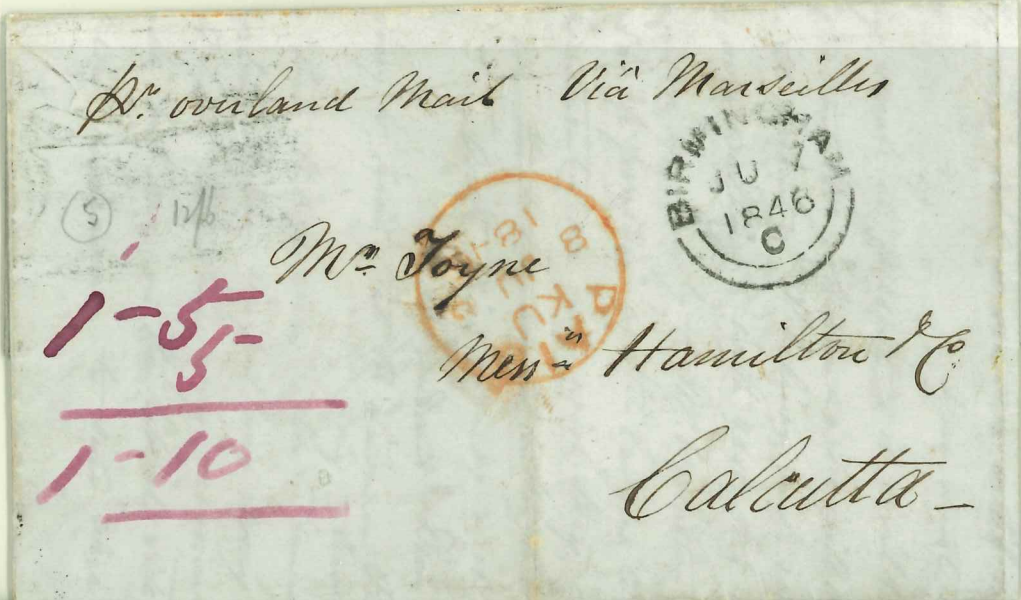 pr. overland Mail Viâ Marseilles
BIRMINGHAM
JU 7
1846
C
5
12/6
PAID
8
JU
Mr. Toyne
Messrs Hamilton & Co
Calcutta –
1 - 5
5 -
1 - 10